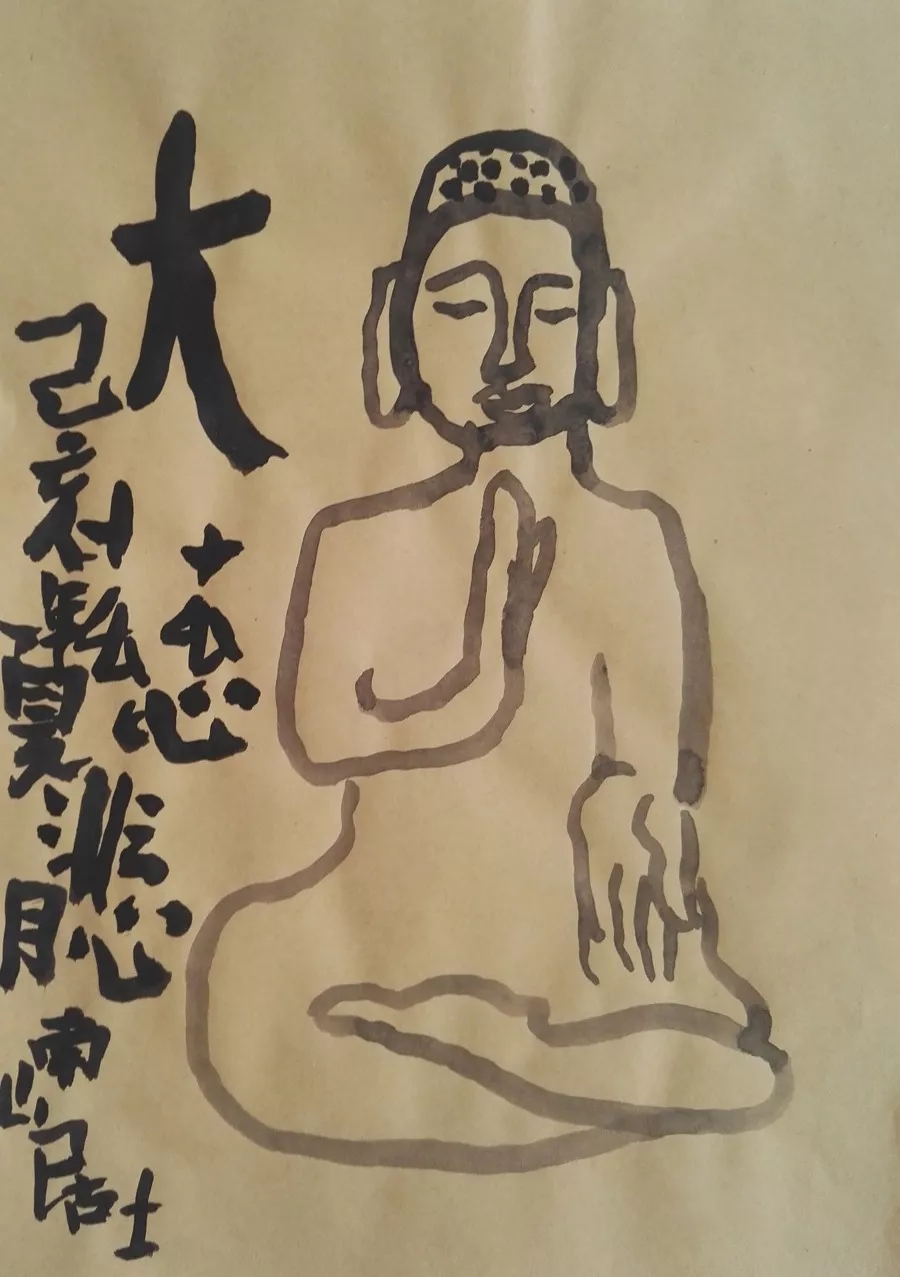 大慈悲
己亥年夏月
南山居士